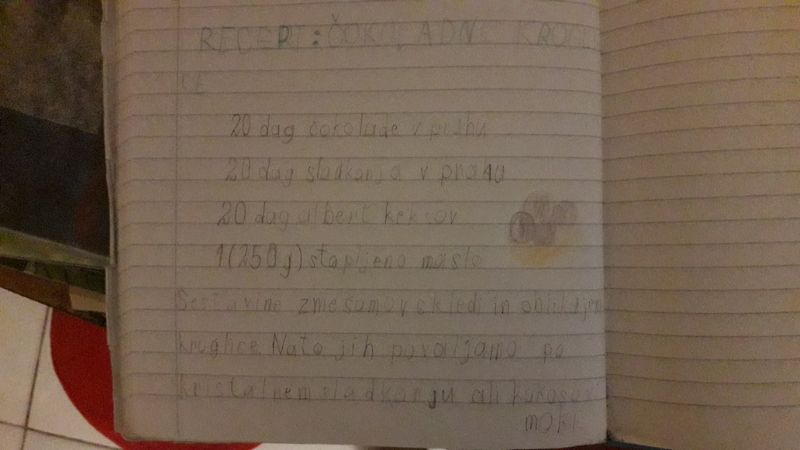 RECEPT: ČOKOLADNE KROGL
ICE
20 dag čokolade v prahu
20 dag sladkorja v prahu
20 dag albert keksov
1(250g) stopljeno maslo
Sestavine zmešamo v skledi in oblikujemo
kroglice. Nato jih povaljamo po
kristalnem sladkorju ali kokosovi
moki.